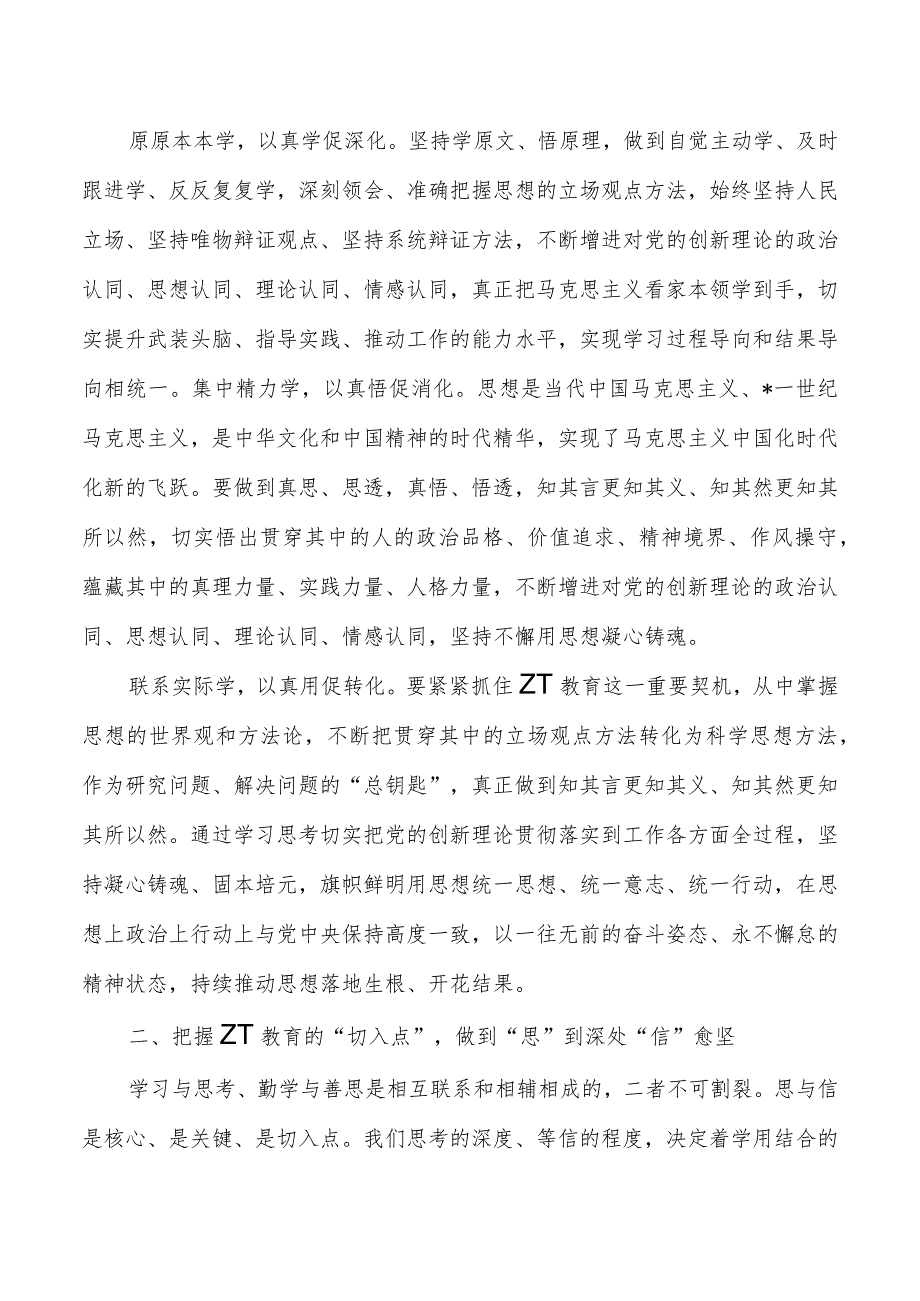 原原本本学，以真学促深化。坚持学原文、悟原理，做到自觉主动学、及时
跟进学、反反复复学，深刻领会、准确把握思想的立场观点方法，始终坚持人民
立场、坚持唯物辩证观点、坚持系统辩证方法，不断增进对党的创新理论的政治
认同、思想认同、理论认同、情感认同，真正把马克思主义看家本领学到手，切
实提升武装头脑、指导实践、推动工作的能力水平，实现学习过程导向和结果导
向相统一。集中精力学，以真悟促消化。思想是当代中国马克思主义、*一世纪
马克思主义，是中华文化和中国精神的时代精华，实现了马克思主义中国化时代
化新的飞跃。要做到真思、思透，真悟、悟透，知其言更知其义、知其然更知其
所以然，切实悟出贯穿其中的人的政治品格、价值追求、精神境界、作风操守，
蕴藏其中的真理力量、实践力量、人格力量，不断增进对党的创新理论的政治认
同、思想认同、理论认同、情感认同，坚持不懈用思想凝心铸魂。
联系实际学，以真用促转化。要紧紧抓住ZT教育这一重要契机，从中掌握
思想的世界观和方法论，不断把贯穿其中的立场观点方法转化为科学思想方法，
作为研究问题、解决问题的“总钥匙”，真正做到知其言更知其义、知其然更知
其所以然。通过学习思考切实把党的创新理论贯彻落实到工作各方面全过程，坚
持凝心铸魂、固本培元，旗帜鲜明用思想统一思想、统一意志、统一行动，在思
想上政治上行动上与党中央保持高度一致，以一往无前的奋斗姿态、永不懈怠的
精神状态，持续推动思想落地生根、开花结果。
二、把握ZT教育的“切入点”，做到“思”到深处“信”愈坚
学习与思考、勤学与善思是相互联系和相辅相成的，二者不可割裂。思与信
是核心、是关键、是切入点。我们思考的深度、等信的程度，决定着学用结合的